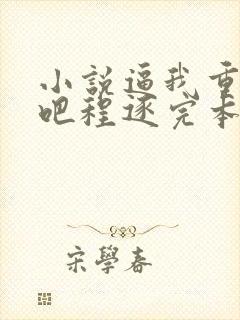 小說逼我重
吧程逐完本
宋學春